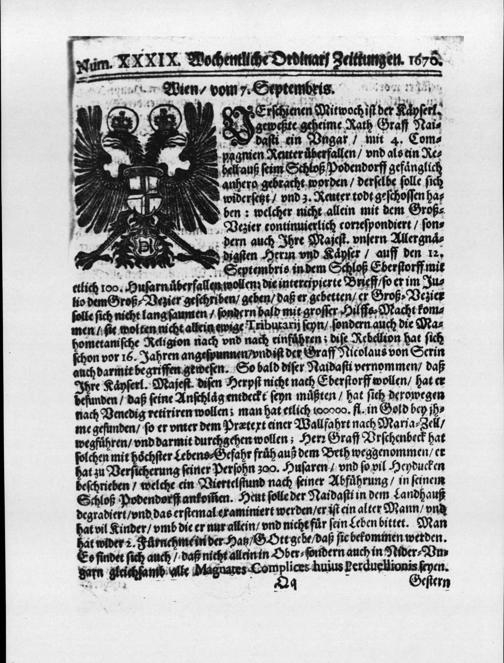 Num. XXXIX. Wochentliche Ordinari Zeittungen. 1670.
Wien/ vom 7. Septembris.
VErschienen Mitwoch ist der Käyserl.
geweßte geheime Rath Graff Nai-
dasti ein Ungar / mit 4. Com-
pagnien Reuter überfallen / und als ein Re-
bell auß seim Schloß Podendorff gefänglich
anhero gebracht worden / derselbe solle sich
widersetzt / und 3. Reuter todt geschossen ha-
ben: welcher nicht allein mit dem Groß-
Vezier continuierlich correspondiert / son-
dern auch Ihre Majest. unsern Allergnä-
digsten Herrn und Käyser / auff den 12.
Septembris in dem Schloß Eberstorff mit
etlich 100. Husarn überfallen wollen; die intercipierte Brieff / so er im Ju-
lio dem Groß-Vezier geschriben / geben / daß er gebetten / er Groß-Vezier
solle sich nicht lang saumen / sondern bald mit grosser Hilffs-Macht kom-
men / sie wolten nicht allein ewige Tributarij seyn / sondern auch die Ma-
hometanische Religion nach und nach einführen; dise Rebellion hat sich
schon vor 16. Jahren angespunnen / und ist der Graff Nicolaus von Serin
auch darmit begriffen gewesen. So bald diser Naidasti vernommen / daß
Ihre Käyserl. Majest. disen Herpst nicht nach Eberstorff wollen / hat er
befunden / daß seine Anschläg entdeckt seyn müßten / hat sich derowegen
nach Venedig retiriren wollen; man hat etlich 100000. fl. in Gold bey jh-
me gefunden / so er unter dem Prætext einer Wallfahrt nach Maria-Zell /
wegführen / und darmit durchgehen wollen; Herr Graff Urschenbeck hat
solchen mit höchster Lebens-Gefahr früh auß dem Beth weggenommen / er
hat zu Versicherung seiner Persohn 300. Husaren / und so vil Heyducken
beschrieben / welche ein Viertelstund nach seiner Abführung / in seinem
Schloß Podendorff ankommen. Heut solle der Naidasti in dem Landhauß
degradiert / und das erstemal examiniert werden / er ist ein alter Mann / und
hat vil Kinder / umb die er nur allein / und nicht für sein Leben bittet. Man
hat wider 2. Fürnehme in der Hatz / GOtt gebe / daß sie bekommen werden.
Es findet sich auch / daß nicht allein in Ober- sondern auch in Nider-Un-
garn gleichsamb alle Magnates Complices huius perduellionis seyen.
Qq
Gestern